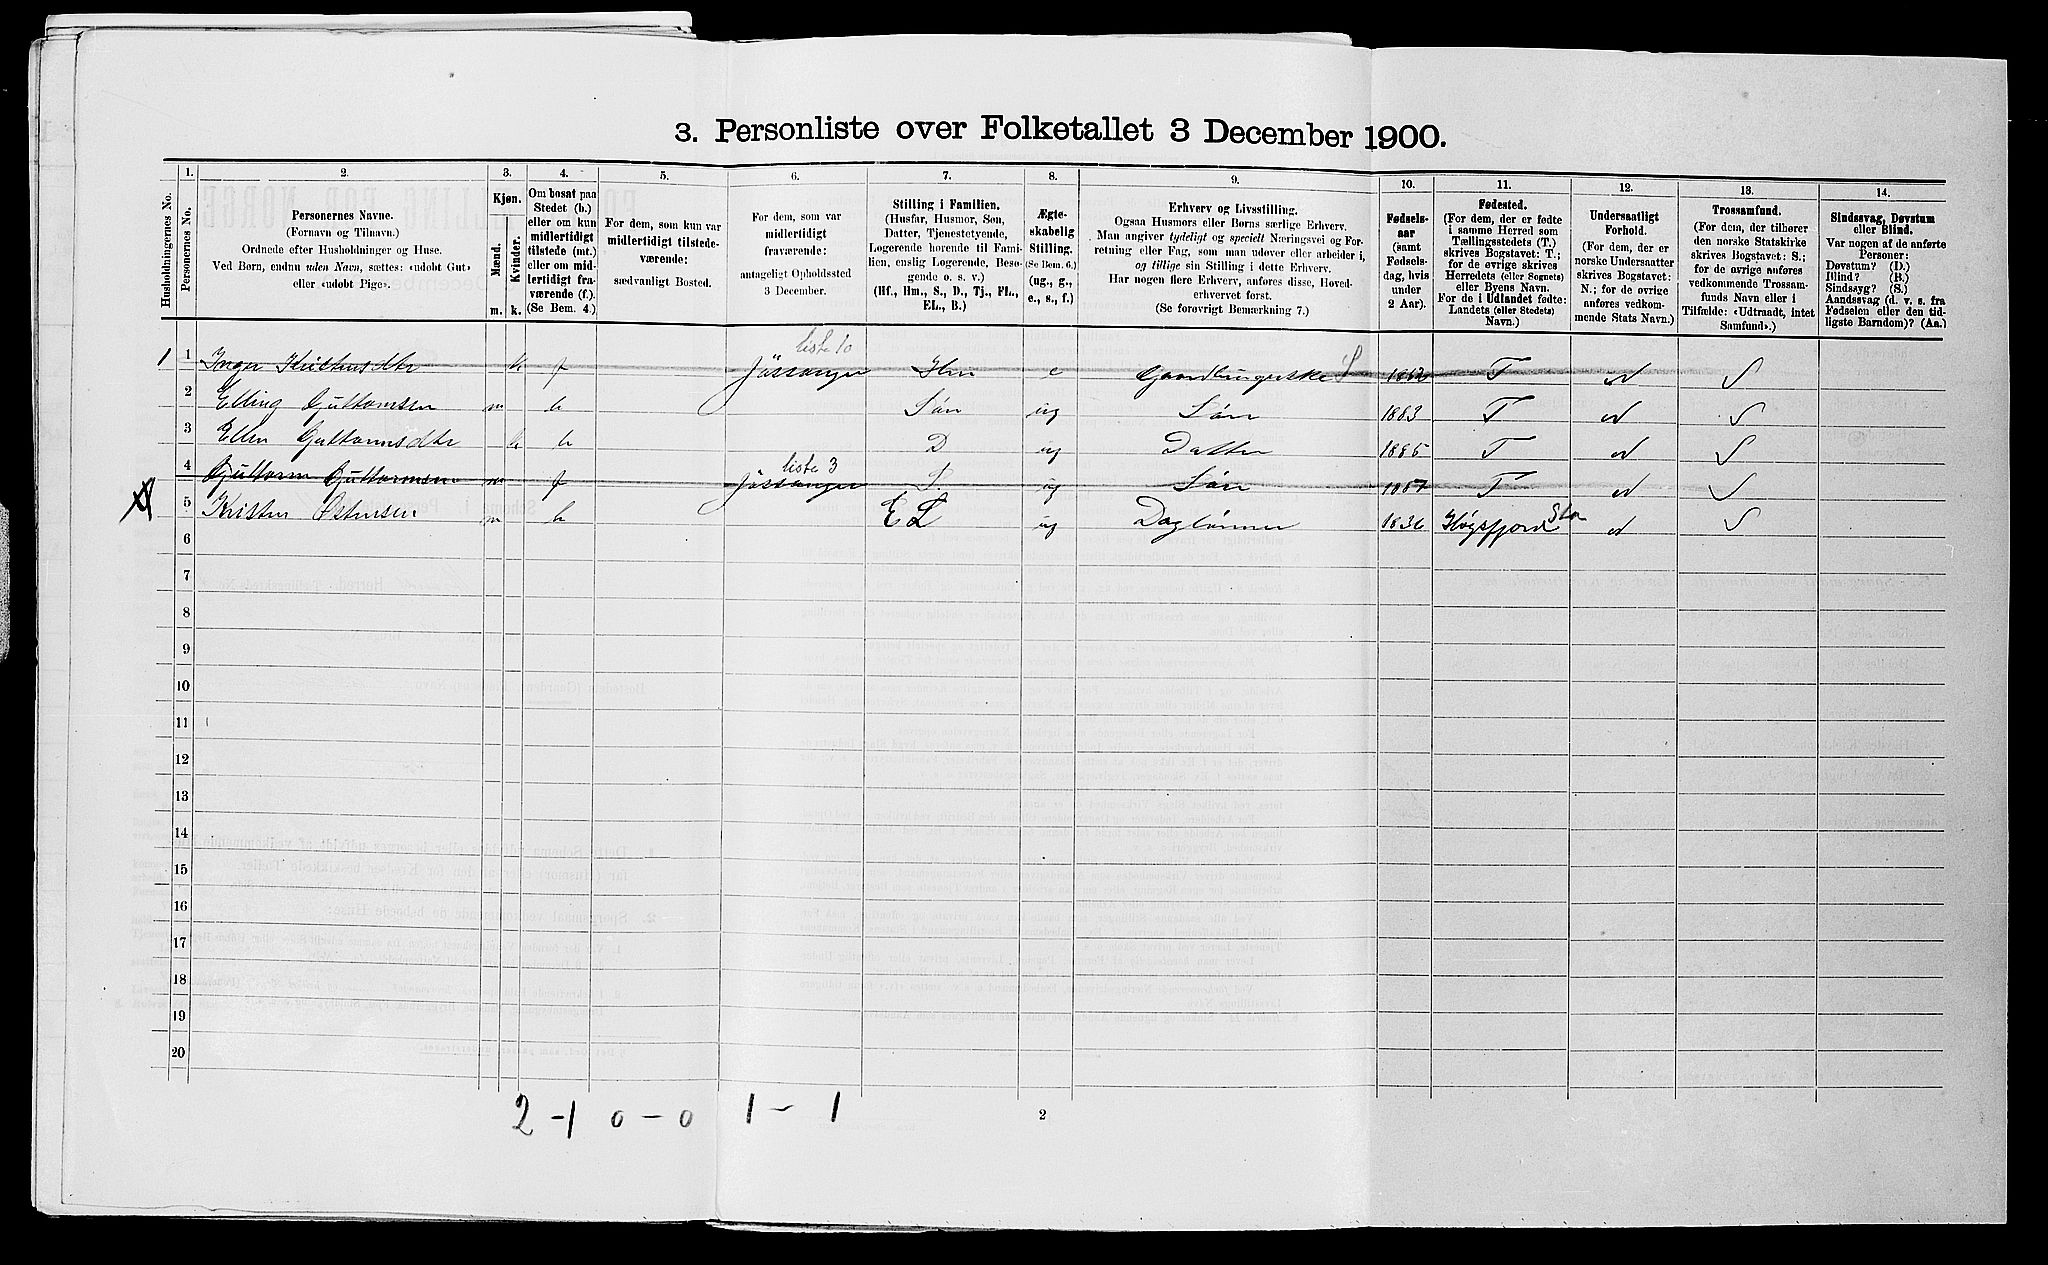 3. Personliste over Folketallet 3 December 1900.
Husholdningernes No.
1.
Personernes No.
2.
Personernes Navne.
(Fornavn og Tilnavn.)
Ordnede efter Husholdninger og Huse.
Ved Børn, endnu uden Navn, sættes: «udøbt Gut»
eller «udøbt Pige».
3.
Kjøn.
Mænd.
Kvinder.
m.
k.
4.
Om bosat paa
Stedet (b.)
eller om kun
midlertidigt
tilstede (mt.)
eller om mid-
lertidigt fra-
værende (f.)
(Se Bem. 4.)
5.
For dem, som kun var
midlertidigt tilstede-
værende:
sædvanligt Bosted.
6.
For dem, som var
midlertidigt
fraværende:
antageligt Opholdssted
3 December.
7.
Stilling i Familien.
(Husfar, Husmor, Søn,
Datter, Tjenestetyende,
Logerende hørende til Fami-
lien, enslig Logerende, Besø-
gende o. s. v.)
(Hf., Hm., S., D., Tj., FL.,
EL., B.)
8.
Ægte-
skabelig
Stilling.
(Se Bem. 6.)
(ug., g.,
e., s., f.)
9.
Erhverv og Livsstilling.
Ogsaa Husmors eller Børns særlige Erhverv.
Man angiver tydeligt og specielt Næringsvei og For-
retning eller Fag, som man udøver eller arbeider i,
og tillige sin Stilling i dette Erhverv.
Har nogen flere Erhverv, anføres disse, Hoved-
erhvervet først.
(Se forøvrigt Bemærkning 7.)
10.
Fødsels-
aar
(samt
Fødsels-
dag, hvis
under
2 Aar).
11.
Fødested.
(For dem, der er fødte
i samme Herred som
Tællingsstedets (T.)
skrives Bogstavet: T.;
for de øvrige skrives
Herredets (eller Sognets)
eller Byens Navn.
For de i Udlandet fødte:
Landets (eller Stedets)
Navn.)
12.
Undersaatligt
Forhold.
(For dem, der er
norske Undersaatter
skrives Bogstavet:
N.; for de øvrige
anføres vedkom-
mende Stats Navn.)
13.
Trossamfund.
(For dem, der tilhører
den norske Statskirke
skrives Bogstavet: S.;
for de øvrige anføres
vedkommende Trossam-
funds Navn eller i
Tilfælde: «Udtraadt, intet
Samfund».)
14.
Sindssvag, Døvstum
eller Blind.
Var nogen af de anførte
Personer:
Døvstum? (D.)
Blind? (B.)
Sindssyg? (S.)
Aandssvag (d. v. s. fra
Fødselen eller den tid-
ligste Barndom)? (Aa.)
liste 10
1 1 Inger Kristensdtr k f Jøssanger Hm e Gaardbrugerske 1862 T N S
2 Elling Guttormsen m b Søn ug Søn 1883 T N S
3 Ellen Guttormsdtr k b D ug Datter 1885 T N S
liste 3
4 Guttorm Guttormsen m f Jøssanger S. ug Søn 1887 T N S
5 Kristen Østensen m b EL ug Daglønner 1836 Høgsfjord N S
6
7
8
9
10
11
12
13
14
15
16
17
18
19
20
2 - 1 0 - 0 1 - 1
2